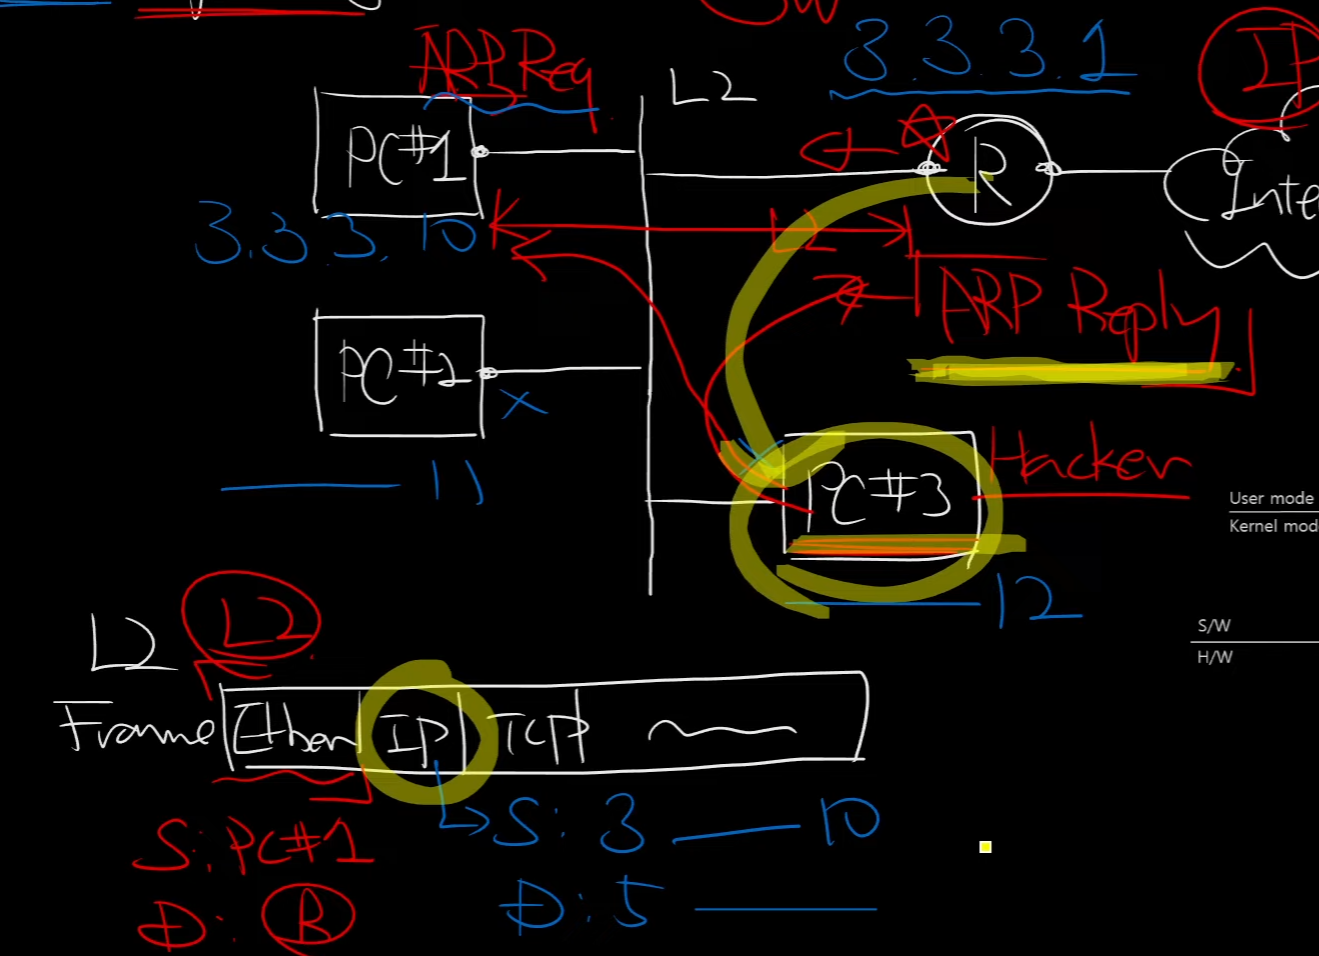 SW
ARP Req
L2
3.3.3.1
IP
PC#1
R
Inte
3.3.3.10
L2
ARP Reply
PC#2
11
PC#3
Hacker
User mode
Kernel mod
12
S/W
H/W
L2
L2
Frame
Ethen
IP
TCP
S: PC#1
S: 3 10
D: R
D: 5